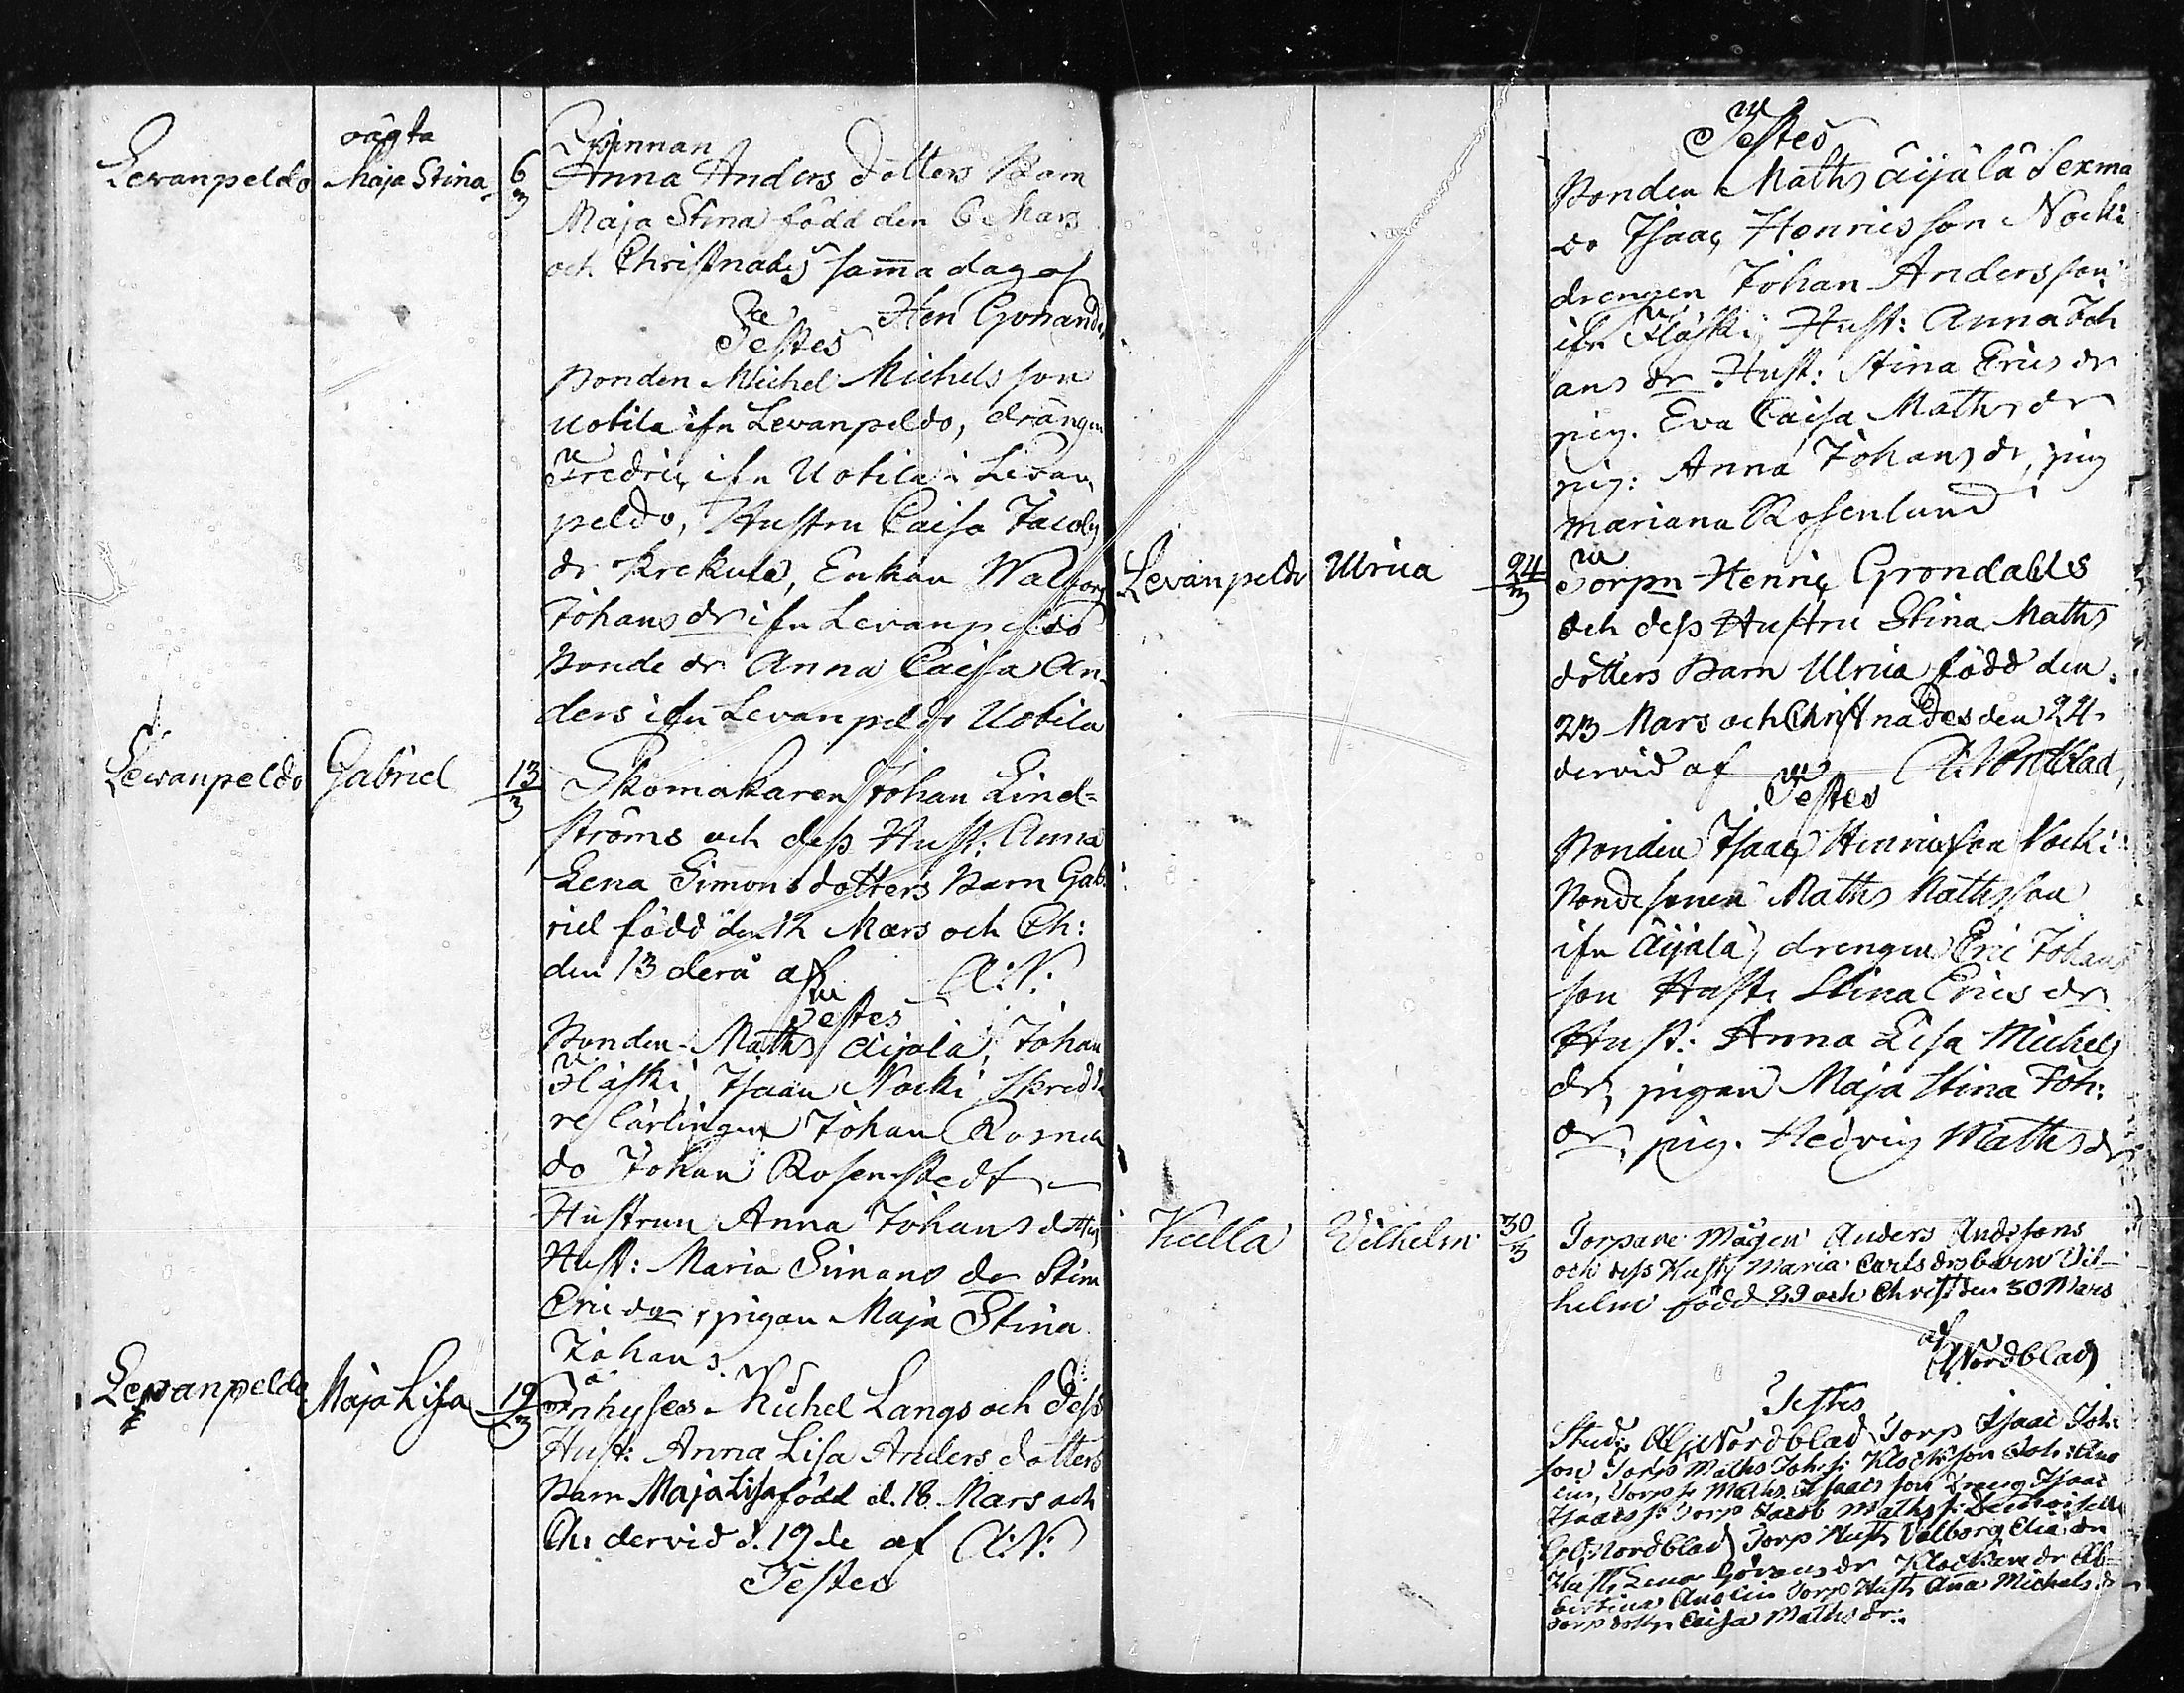 oägta
Levanpeldo Maja Stina 6/3 Qvinnan
Anna Anders dotters Barn
Maja Stina född den 6 Mars
och Christnades samma dag af
Hen Gonand
Testes
Bonden Michel Michels son
Uotila ifn Levanpeldo, drängen
Fredric ifn Uotila i Levan
peldo, Hustru Caisa Jacobs
dr Krekula, Enkan Walborg
Johans dr ifn Levanpeldo
Bonde dr Anna Caisa An-
ders ifn Levanpeldo Uotila
Levanpeldo Gabriel 13/3 Skomakaren Johan Lind-
ströms och dess Hust: Anna
Lena Simonsdotters Barn Gab
riel född den 12 Mars och Ch:
den 13 derå af A:N:
Testes
Bonden Maths Äijälä, Johan
Fläski, Isaac Nocki Skredda
re Lärlingen Johan
do Johan Rosenstedt
Hustrun Anna Johans dotter
Hust: Maria Simons dr Stina
Eric dr, pigan Maja Stina
Johans
Levanpeldo Maja Lisa 19/3 Inhyses Michel Langs och dess
Hust: Anna Lisa Anders dotters
Barn Maja Lisa född d. 18 Mars och
Ch: dervid d. 19 de af A:N:
Testes
Testes
Bonden Maths Äijälä Sexma
do Isaac Henricsson Nocki
drengen Johan Andersson
ifn Fläski, Hust: Anna Joh
ans dr Hust: Stina Erics dr
pig. Eva Caisa Maths dr
pig: Anna Johans dr, pig
Mariana Rosenlund
Levanpeldo Ulrica 24/3 Torpn Henric Grondahls
och dess Hustru Stina Maths
dotters Barn Ulrica född den
23 Mars och Christnades den 24
dervid af A. Nordblad
Testes
Bonden Isaac Henricsson Nocki
Bondesonen Maths Mathsson
ifn Äijälä, drengen Eric Johans
son Hust: Stina Erics dr
Hust: Anna Lisa Michels
dr, pigan Maja Stina Joh:
dr, pig. Hedvig Maths dr
Kulla Vilhelm 30/3 Torpare Mågen Anders Andersons
och dess Hust: Maria Carls drs barn Vil-
helm född 29 och Christ den 30 Mars
af
A. Nordblad
Testes
Stud: Nordblad, Torp Isaac Joh:
son Torp Maths Johss: Klockson Joh: Ano
lin, Torp s Maths Isaacs son Dreng Isaac
Isaacs s: Torp Jacob Maths s: Demoiselle
Nordblad, Torp Hust: Valborg Elia dr
Hust: Lena Görans dr Klockare dr Al-
bertina Anolin Torp Hust: Ana Michels dr
Torp dottr Caisa Maths dr: